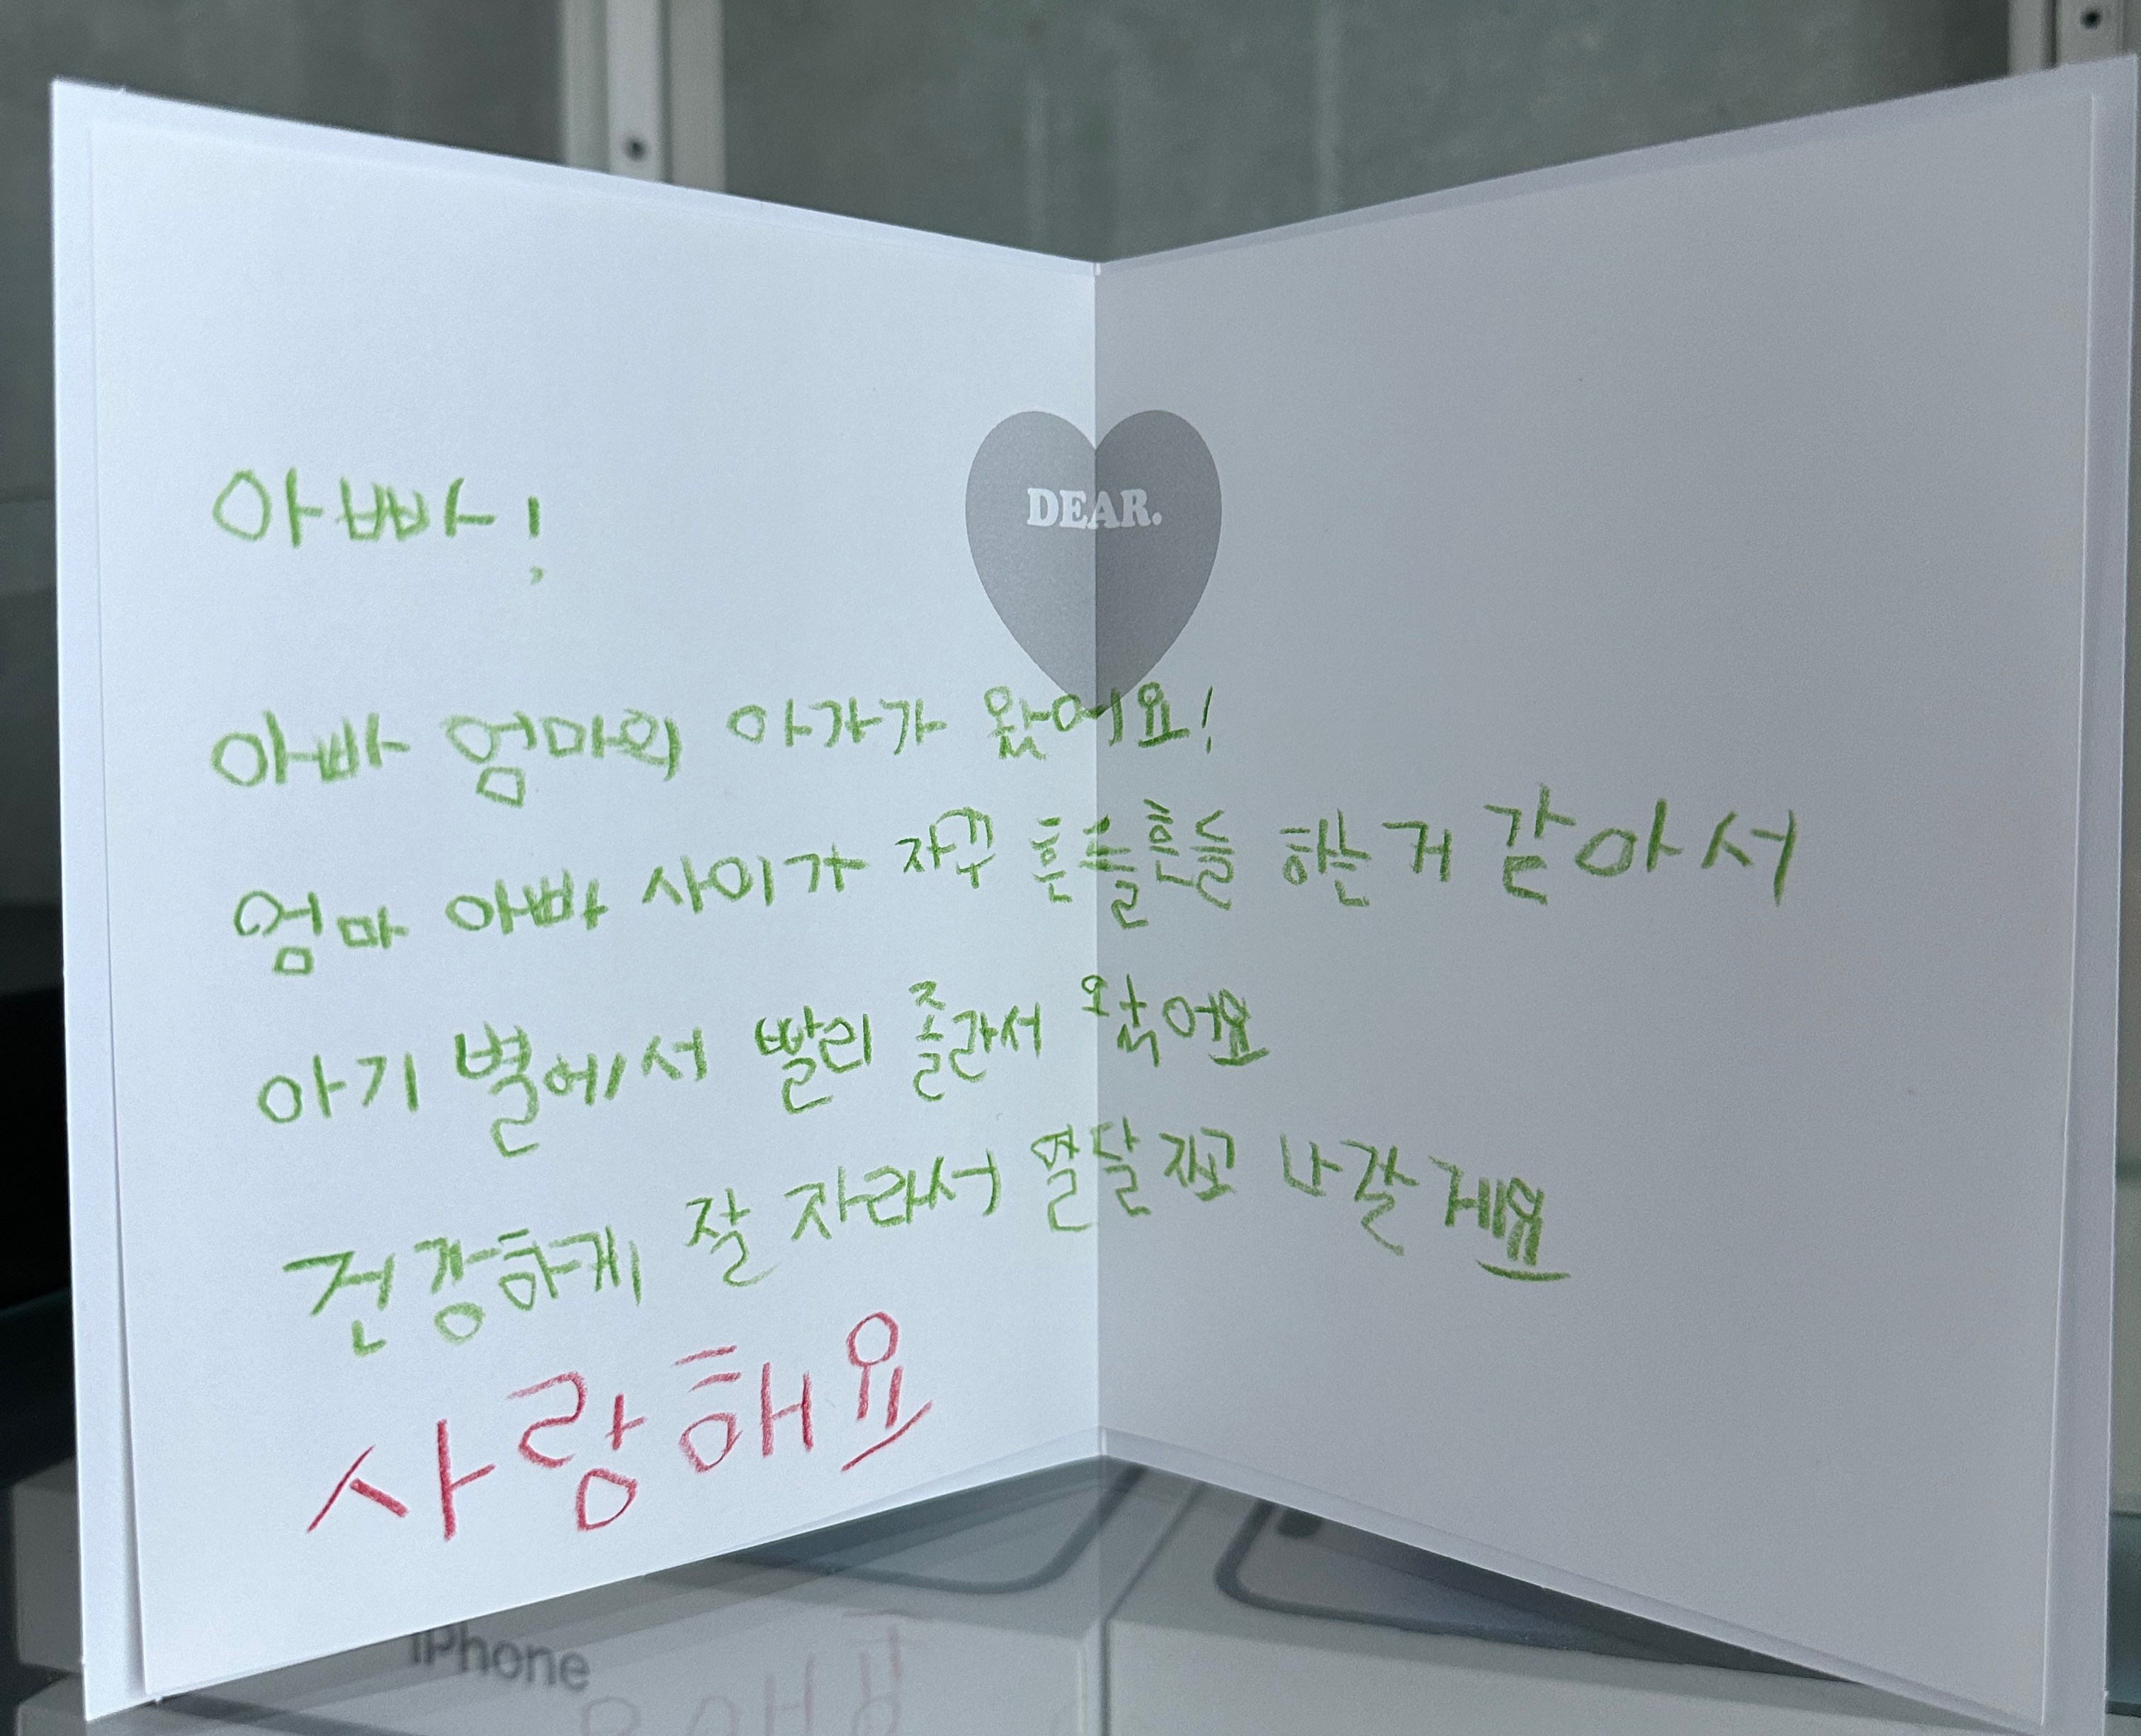 DEAR.
아빠!
아빠 엄마의 아가가 왔어요!
엄마 아빠 사이가 자꾸 흔들흔들 하는 거 같아서
아기 별에서 빨리 졸라서 왔어요
건강하게 잘 자라서 열달 차고 나갈게요
사랑해요
iPhone